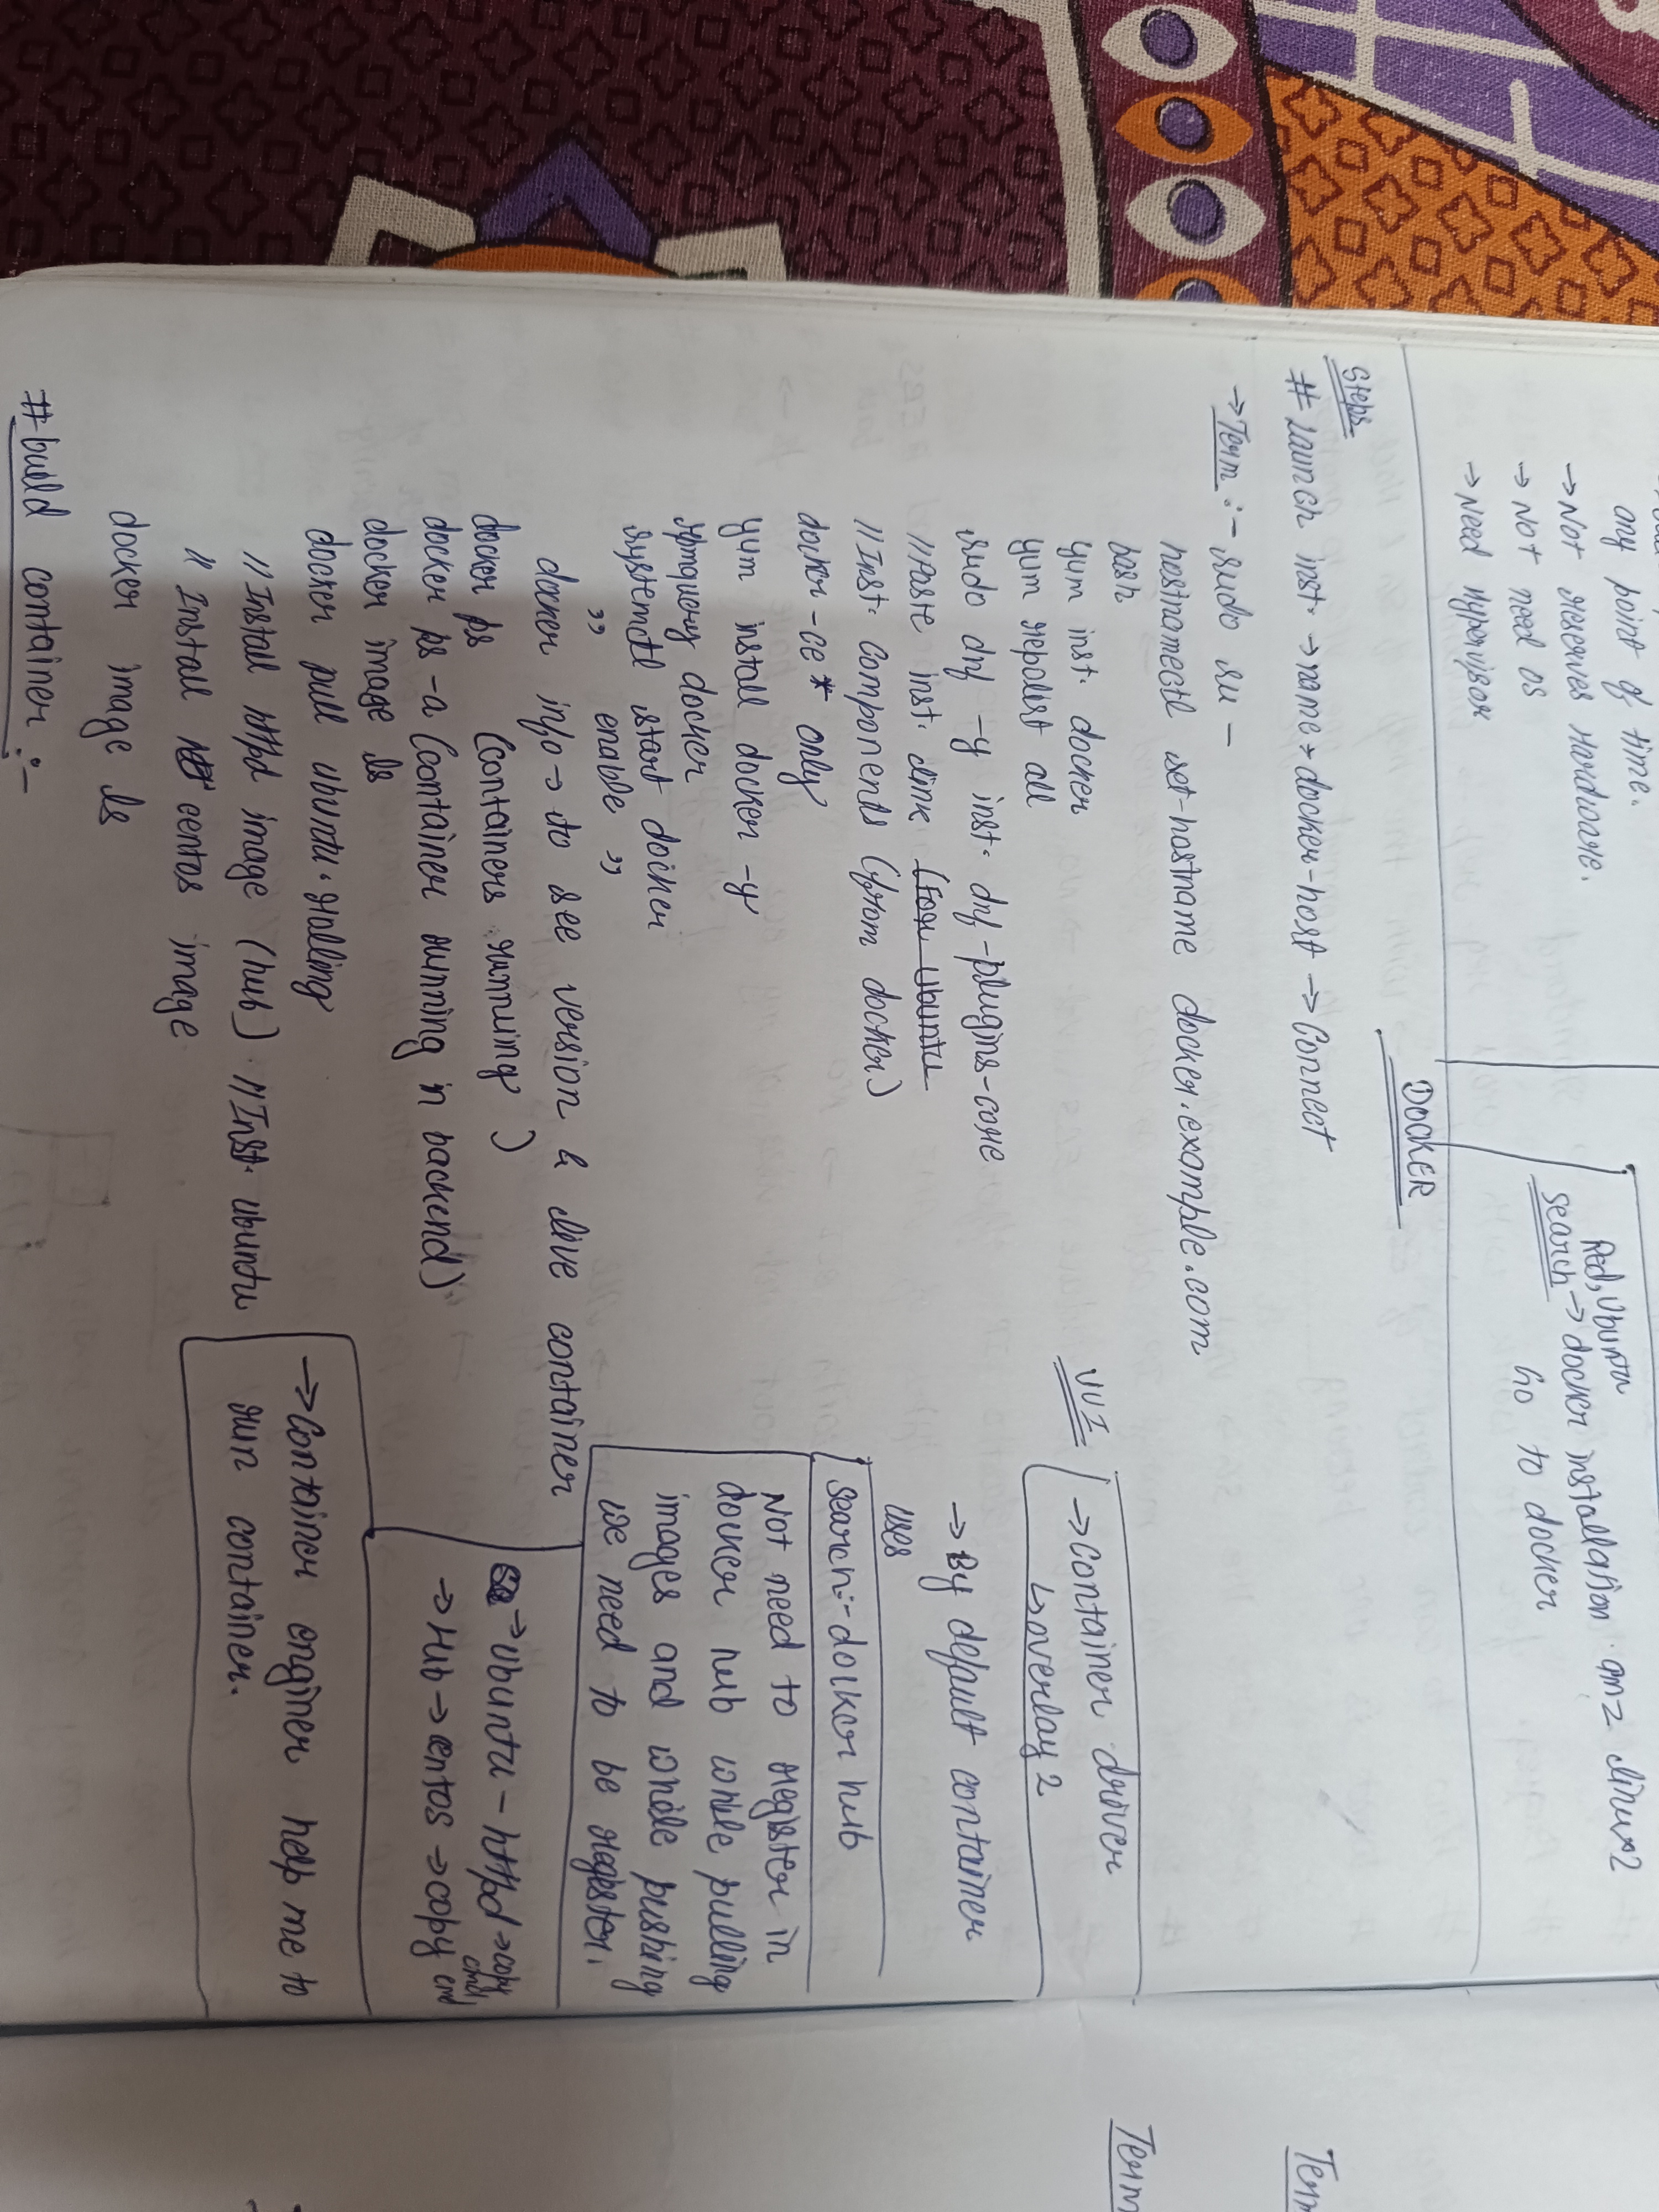 any point of time.
→ Not reserves Hardware.
→ Not need OS
→ Need Hypervisor
Red, Ubuntu
search → docker installation amz linux 2
Go to docker
DOCKER
Steps
# Launch inst. → name → docker-host → Connect
→ Term :- sudo su -
hostnamectl set-hostname docker.example.com
bash
yum inst. docker
yum repolist all
sudo dnf -y inst. dnf-plugins-core
//Paste inst. link (For Ubuntu
//Inst. Components (from docker)
docker-ce* only
yum install docker -y
rpmquery docker
systemctl start docker
,, enable ,,
docker info → to see version & live container
docker ps (containers running)
docker ps -a (container running in backend)
docker image ls
docker pull ubuntu:rolling
//Install httpd image (hub) //Inst. ubuntu
// Install centos image
docker image ls
# build container :-
VVI
→ Container driver
↳ overlay 2
→ By default container
uses
Search:- docker hub
Not need to register in
docker hub while pulling
images and while pushing
we need to be register.
→ Ubuntu - httpd → copy
cmd
→ Hub → centos → copy cmd
→ Container enginer help me to
run container.
Term
Term